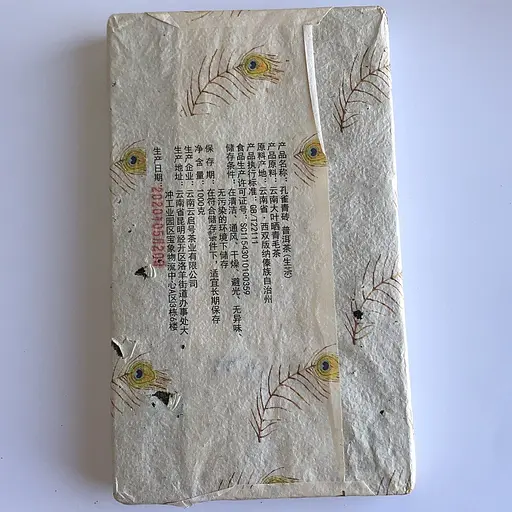 产品名称：孔雀青砖 普洱茶（生茶）
产品原料：云南大叶晒青毛茶
原料产地：云南省·西双版纳傣族自治州
产品执行标准：GB/T22111
食品生产许可证号：SC11543010100359
储存条件：在清洁、通风、干燥、避光、无异味、
无污染的环境下储存
保 存 期：在符合储存条件下，适宜长期保存
净 含 量：1000克
生产企业：云南云启号茶业有限公司
生产地址：云南省昆明经开区洛羊街道办事处大
冲工业园区宝象物流中心A区8栋6楼
生产日期：